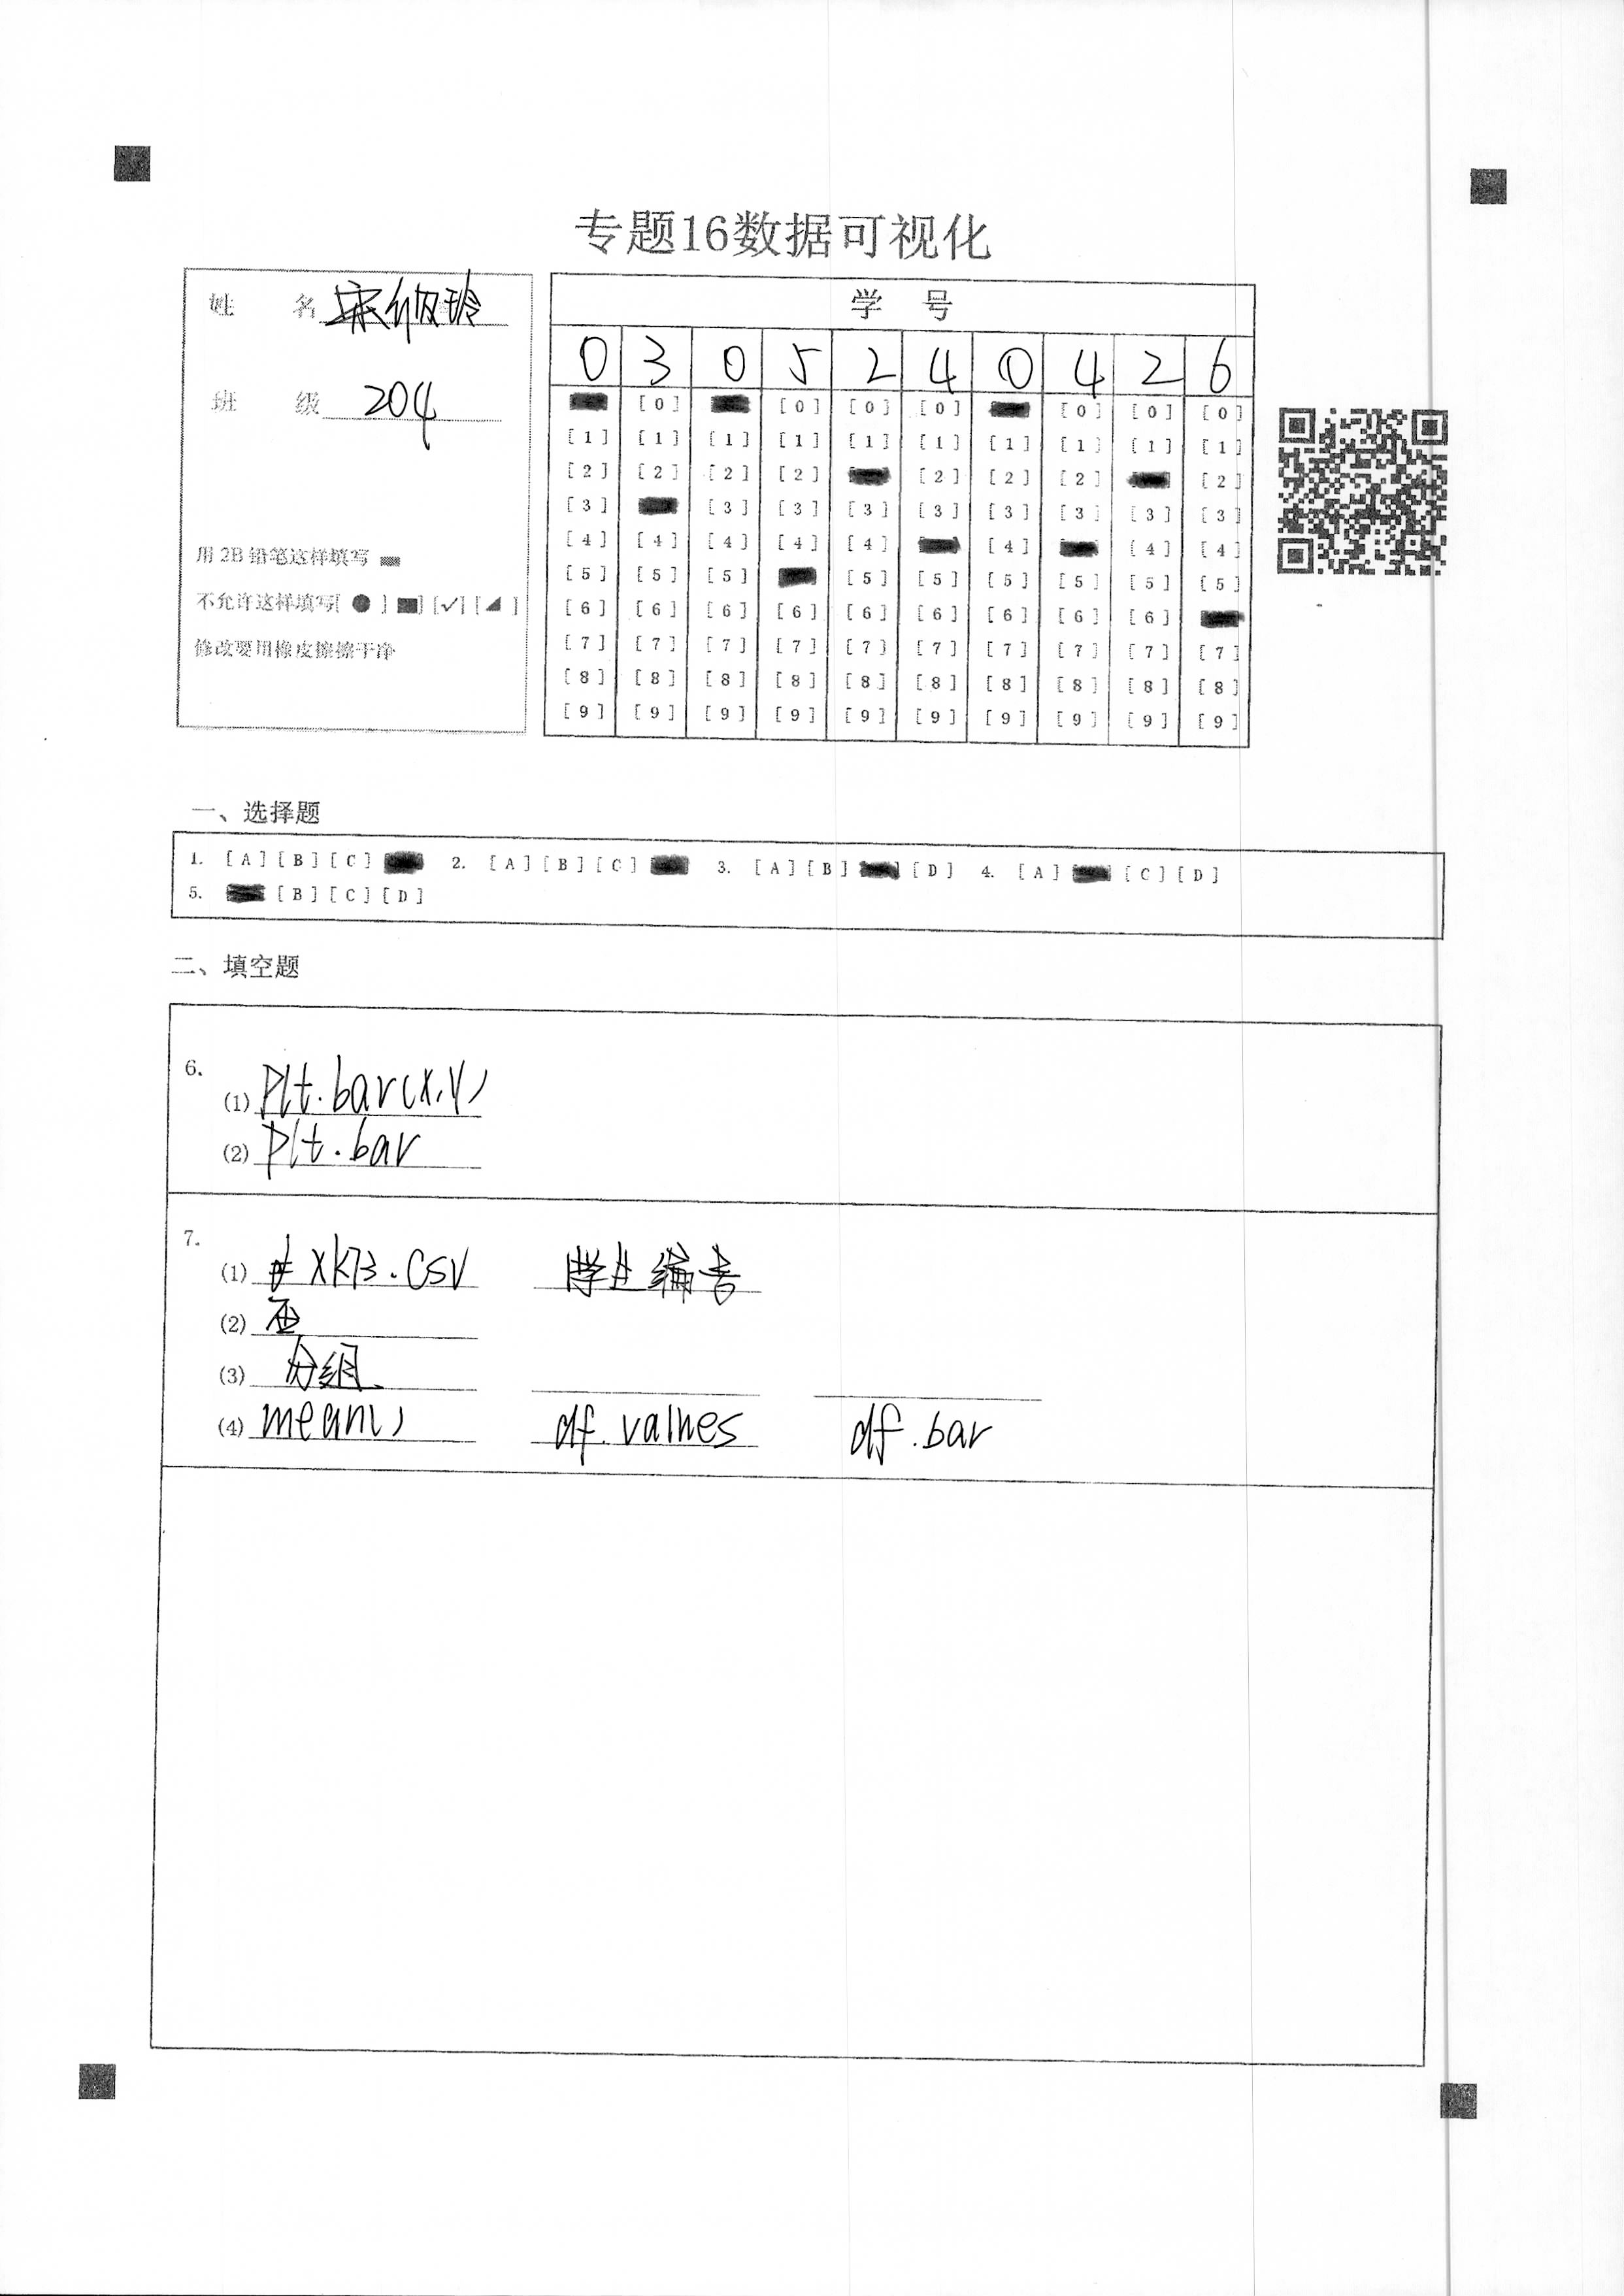 专题16数据可视化
姓 名
班 级 204
用 2B 铅笔这样填写
不允许这样填写[ ● ] [■] [✓] [◢ ]
修改要用橡皮擦擦干净
学 号
0 3 0 5 2 4 0 4 2 6
[0] [0] [0] [0] [0] [0] [0]
[1] [1] [1] [1] [1] [1] [1] [1] [1] [1]
[2] [2] [2] [2] [2] [2] [2] [2]
[3] [3] [3] [3] [3] [3] [3] [3] [3]
[4] [4] [4] [4] [4] [4] [4] [4]
[5] [5] [5] [5] [5] [5] [5] [5] [5]
[6] [6] [6] [6] [6] [6] [6] [6] [6]
[7] [7] [7] [7] [7] [7] [7] [7] [7] [7]
[8] [8] [8] [8] [8] [8] [8] [8] [8] [8]
[9] [9] [9] [9] [9] [9] [9] [9] [9] [9]
一、选择题
1. [A] [B] [C] 2. [A] [B] [C] 3. [A] [B] [D] 4. [A] [C] [D]
5. [B] [C] [D]
二、填空题
6.
(1) plt.bar(x,y)
(2) plt.bar
7.
(1) XKB.csv 学生编号
(2) 否
(3) 分组
(4) mean() df.values df.bar